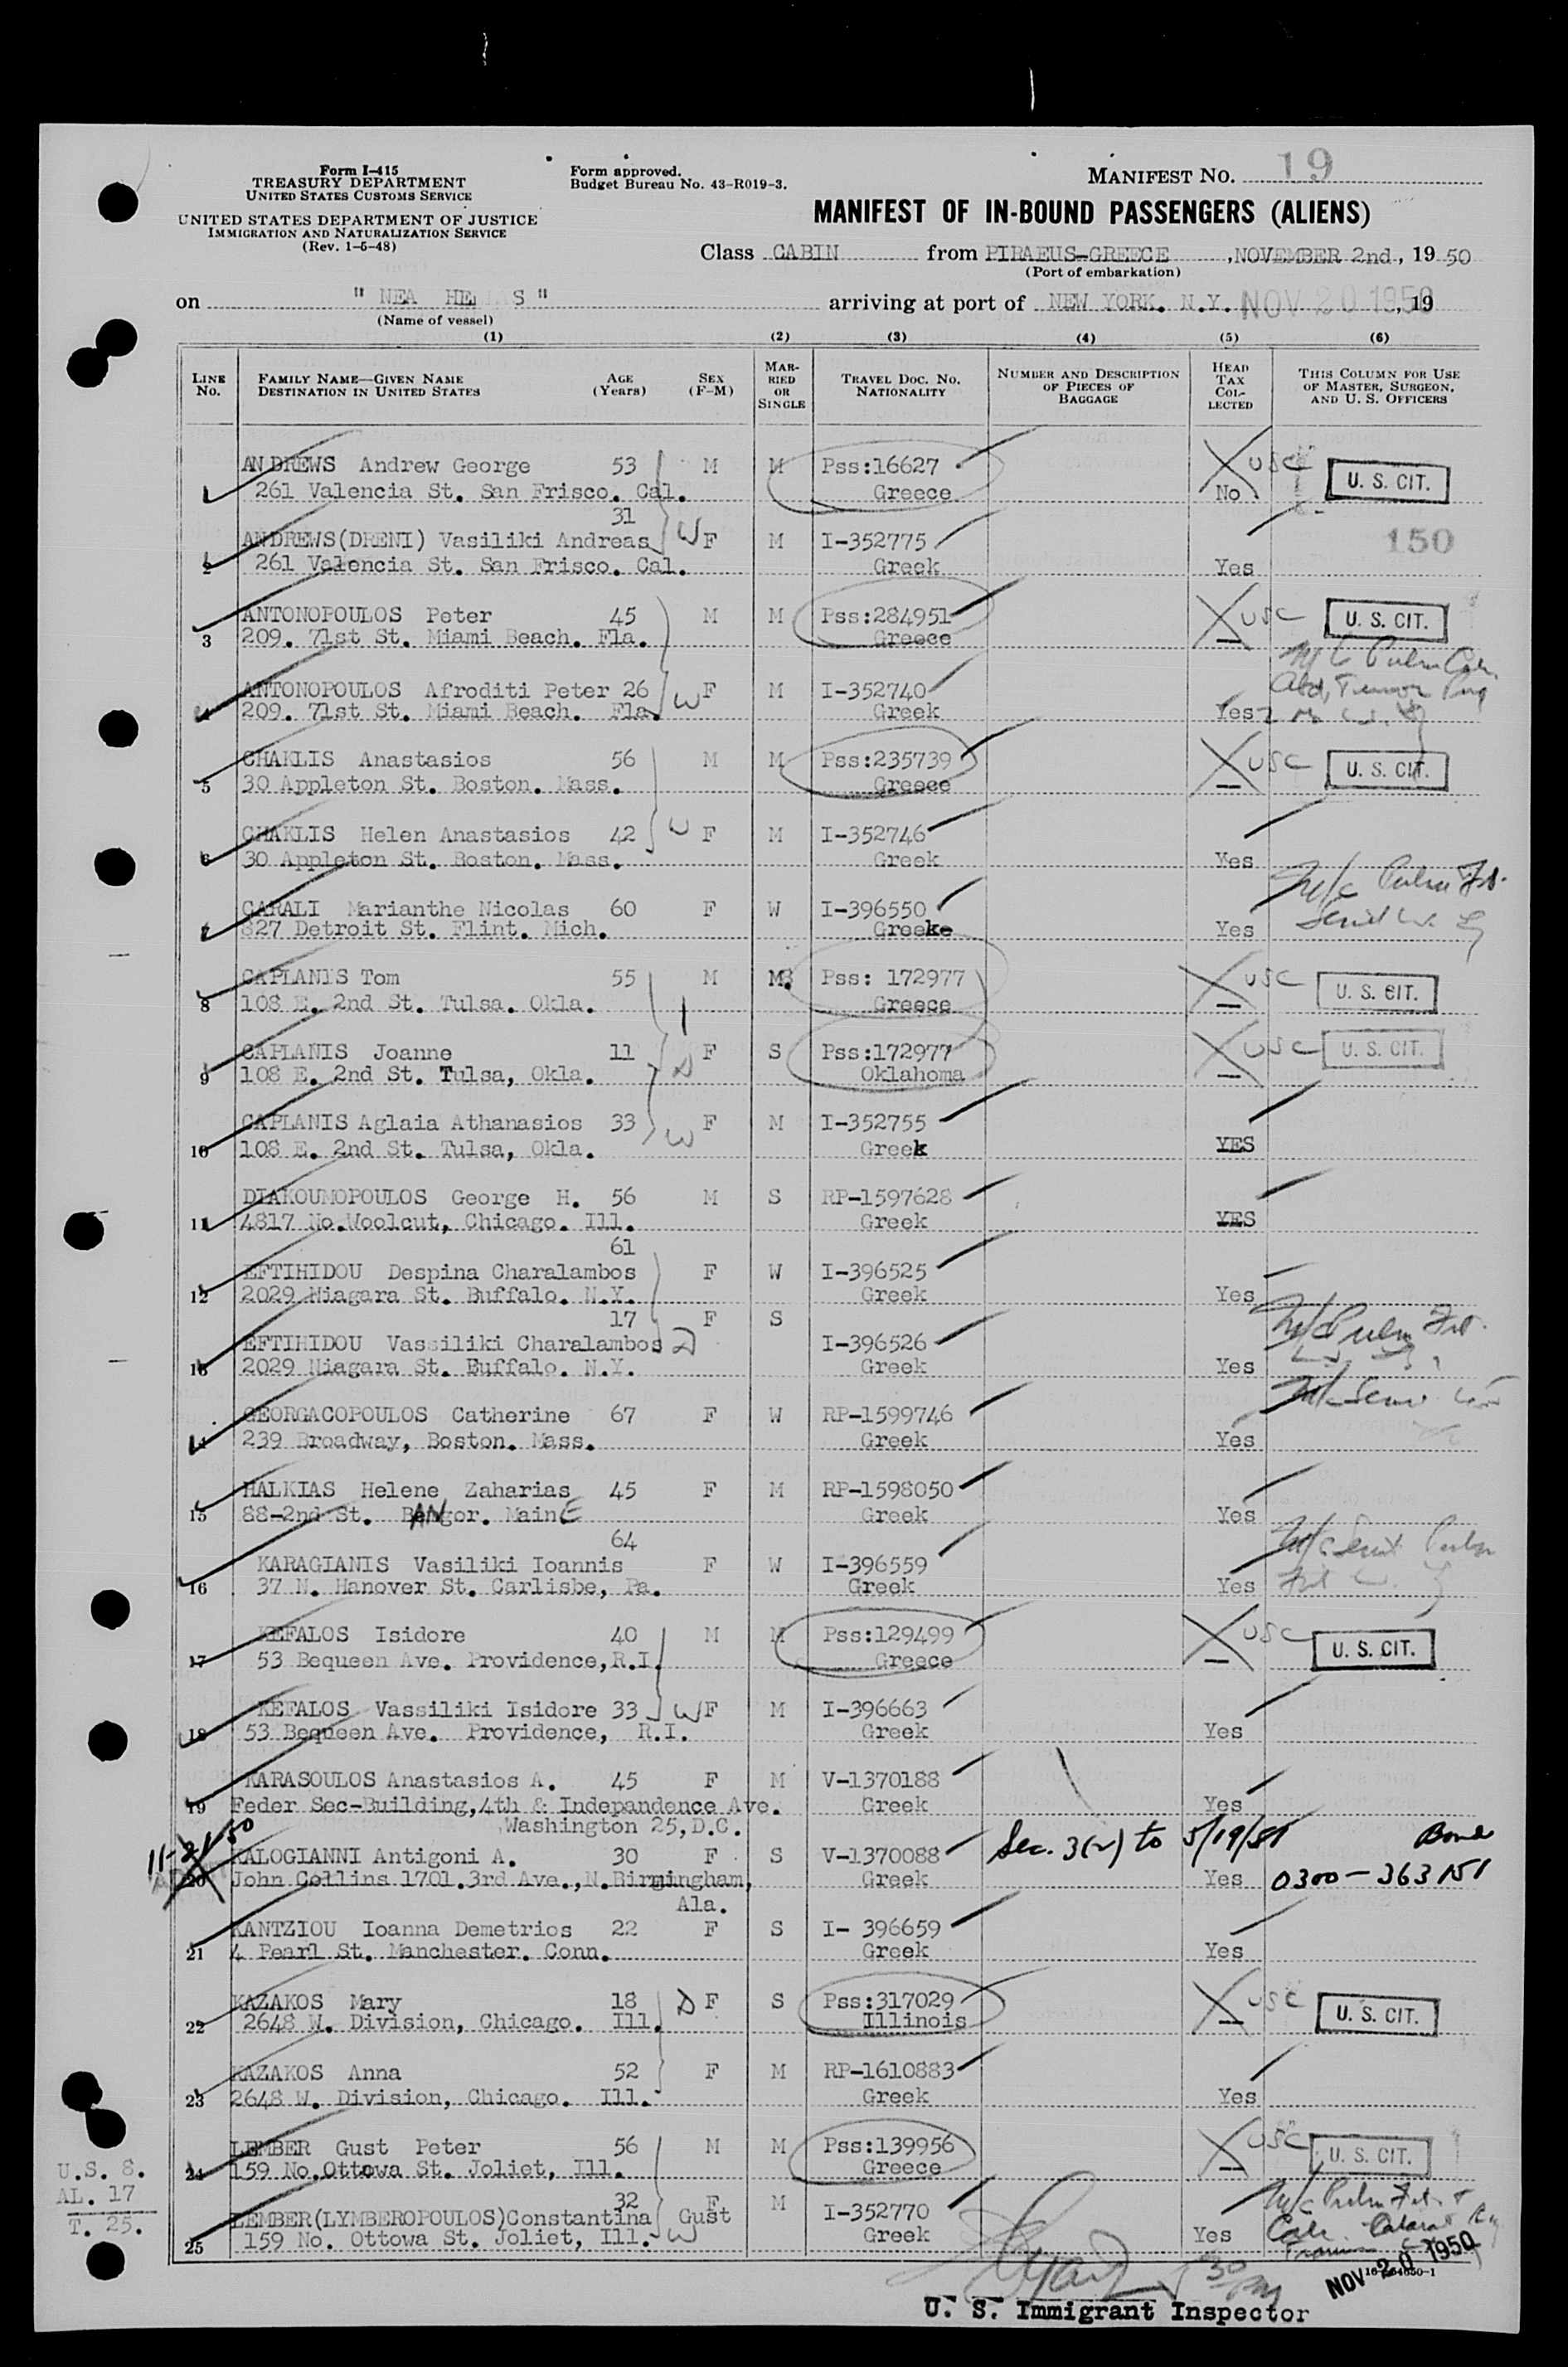 Form I-415
TREASURY DEPARTMENT
UNITED STATES CUSTOMS SERVICE
UNITED STATES DEPARTMENT OF JUSTICE
IMMIGRATION AND NATURALIZATION SERVICE
(Rev. 1-6-48)
Form approved.
Budget Bureau No. 43-R019-3.
MANIFEST NO. 19
MANIFEST OF IN-BOUND PASSENGERS (ALIENS)
Class CABIN from PIRAEUS-GREECE, NOVEMBER 2nd, 19 50
(Port of embarkation)
on " NEA HE S " arriving at port of NEW YORK. N.Y. NOV 20 1950, 19
(Name of vessel)
(1) (2) (3) (4) (5) (6)
LINE NO. FAMILY NAME—GIVEN NAME DESTINATION IN UNITED STATES AGE (Years) SEX (F-M) MARRIED OR SINGLE TRAVEL DOC. NO. NATIONALITY NUMBER AND DESCRIPTION OF PIECES OF BAGGAGE HEAD TAX COLLECTED THIS COLUMN FOR USE OF MASTER, SURGEON, AND U. S. OFFICERS
ANDREWS Andrew George 53 M M Pss:16627 USC U. S. CIT.
1 261 Valencia St. San Frisco. Cal. Greece No
31
ANDREWS(DRENI) Vasiliki Andreas W F M I-352775 150
2 261 Valencia St. San Frisco. Cal. Greek Yes
ANTONOPOULOS Peter 45 M M Pss:284951 USC U. S. CIT.
3 209. 71st St. Miami Beach. Fla. Greece —
ANTONOPOULOS Afroditi Peter 26 W F M I-352740
4 209. 71st St. Miami Beach. Fla. Greek Yes
CHAKLIS Anastasios 56 M M Pss:235739 USC U. S. CIT.
5 30 Appleton St. Boston. Mass. Greece —
CHAKLIS Helen Anastasios 42 W F M I-352746
6 30 Appleton St. Boston. Mass. Greek Yes
GARALI Marianthe Nicolas 60 F W I-396550 M/c
7 827 Detroit St. Flint. Mich. Greeke Yes
CAPLANIS Tom 55 M M. Pss: 172977 USC U. S. CIT.
8 108 E. 2nd St. Tulsa. Okla. Greece —
CAPLANIS Joanne 11 D F S Pss:172977 USC U. S. CIT.
9 108 E. 2nd St. Tulsa, Okla. Oklahoma —
CAPLANIS Aglaia Athanasios 33 W F M I-352755
10 108 E. 2nd St. Tulsa, Okla. Greek YES
DIAKOUMOPOULOS George H. 56 M S RP-1597628
11 4817 No.Woolcut, Chicago. Ill. Greek YES
61
EFTIHIDOU Despina Charalambos F W I-396525
12 2029 Niagara St. Buffalo. N.Y. Greek Yes
17 F S
EFTIHIDOU Vassiliki Charalambos D I-396526
13 2029 Niagara St. Buffalo. N.Y. Greek Yes
GEORGACOPOULOS Catherine 67 F W RP-1599746
14 239 Broadway, Boston. Mass. Greek Yes
HALKIAS Helene Zaharias 45 F M RP-1598050
15 88-2nd St. BANgor. MainE Greek Yes
64
KARAGIANIS Vasiliki Ioannis F W I-396559
16 37 N. Hanover St. Carlisbe, Pa. Greek Yes
KEFALOS Isidore 40 M M Pss:129499 USC U. S. CIT.
17 53 Bequeen Ave. Providence,R.I. Greece —
KEFALOS Vassiliki Isidore 33 W F M I-396663
18 53 Bequeen Ave. Providence, R.I. Greek Yes
KARASOULOS Anastasios A. 45 F M V-1370188
19 Feder Sec-Building,4th & Independance Ave. Greek Yes
Washington 25,D.C.
11-21/50 KALOGIANNI Antigoni A. 30 F S V-1370088 Sec. 3(2) to 5/19/51 Bond
20 John Collins 1701.3rd Ave.,N.Birmingham, Greek Yes 0300-363151
Ala.
KANTZIOU Ioanna Demetrios 22 F S I- 396659
21 4 Pearl St. Manchester. Conn. Greek Yes
KAZAKOS Mary 18 D F S Pss:317029 USC U. S. CIT.
22 2648 W. Division, Chicago. Ill. Illinois —
KAZAKOS Anna 52 F M RP-1610883
23 2648 W. Division, Chicago. Ill. Greek Yes
LEMBER Gust Peter 56 M M Pss:139956 USC U. S. CIT.
24 159 No.Ottowa St. Joliet, Ill. Greece —
32 F M
LEMBER(LYMBEROPOULOS)Constantina Gust W I-352770
25 159 No. Ottowa St. Joliet, Ill. Greek Yes
U.S. 8.
AL. 17
T. 25.
NOV 20 1950
U. S. Immigrant Inspector